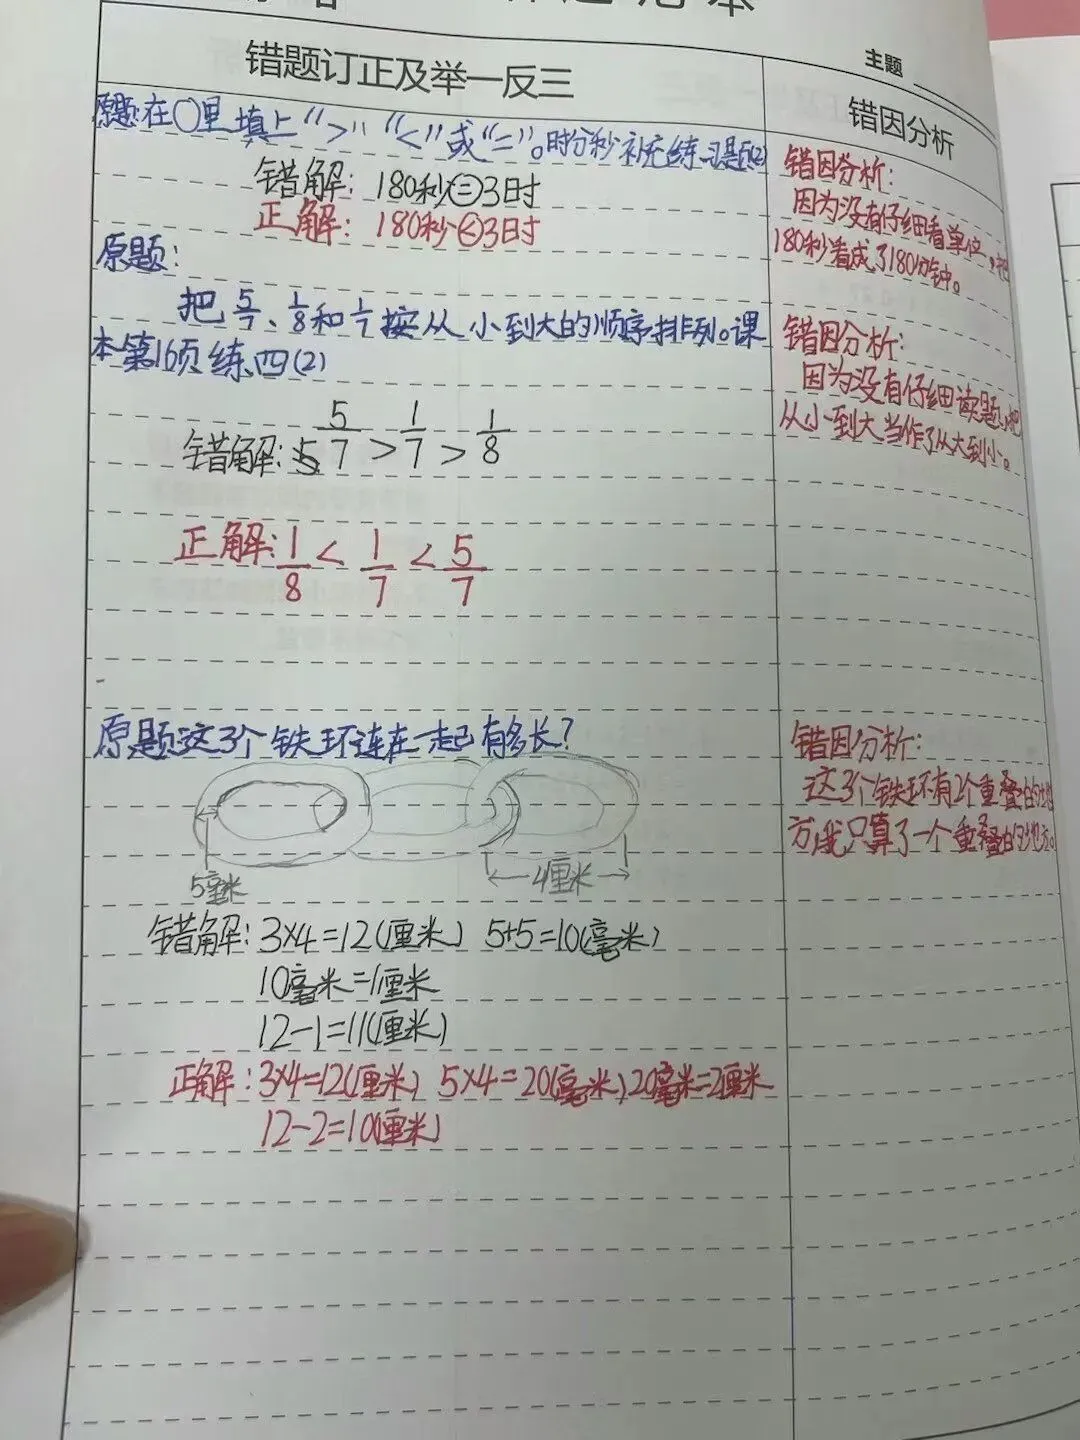 主题
错题订正及举一反三
错因分析
原题:在〇里填上“>”“<”或“=”。时分秒补充练习题(2)
错解: 180秒=3时
正解: 180秒<3时
错因分析:
因为没有仔细看单位。把
180秒看成了180分钟。
原题:
把5/7、1/8和1/7按从小到大的顺序排列。课
本第16页练四(2)
错解: 5/7 > 1/7 > 1/8
正解: 1/8 < 1/7 < 5/7
错因分析:
因为没有仔细读题,把
从小到大当作了从大到小。
原题:这3个铁环连在一起有多长?
5毫米
4厘米
错解: 3×4=12(厘米) 5+5=10(毫米)
10毫米=1厘米
12-1=11(厘米)
正解: 3×4=12(厘米) 5×4=20(毫米) 20毫米=2厘米
12-2=10(厘米)
错因分析:
这3个铁环有2个重叠的地
方,我只算了一个重叠的地方。